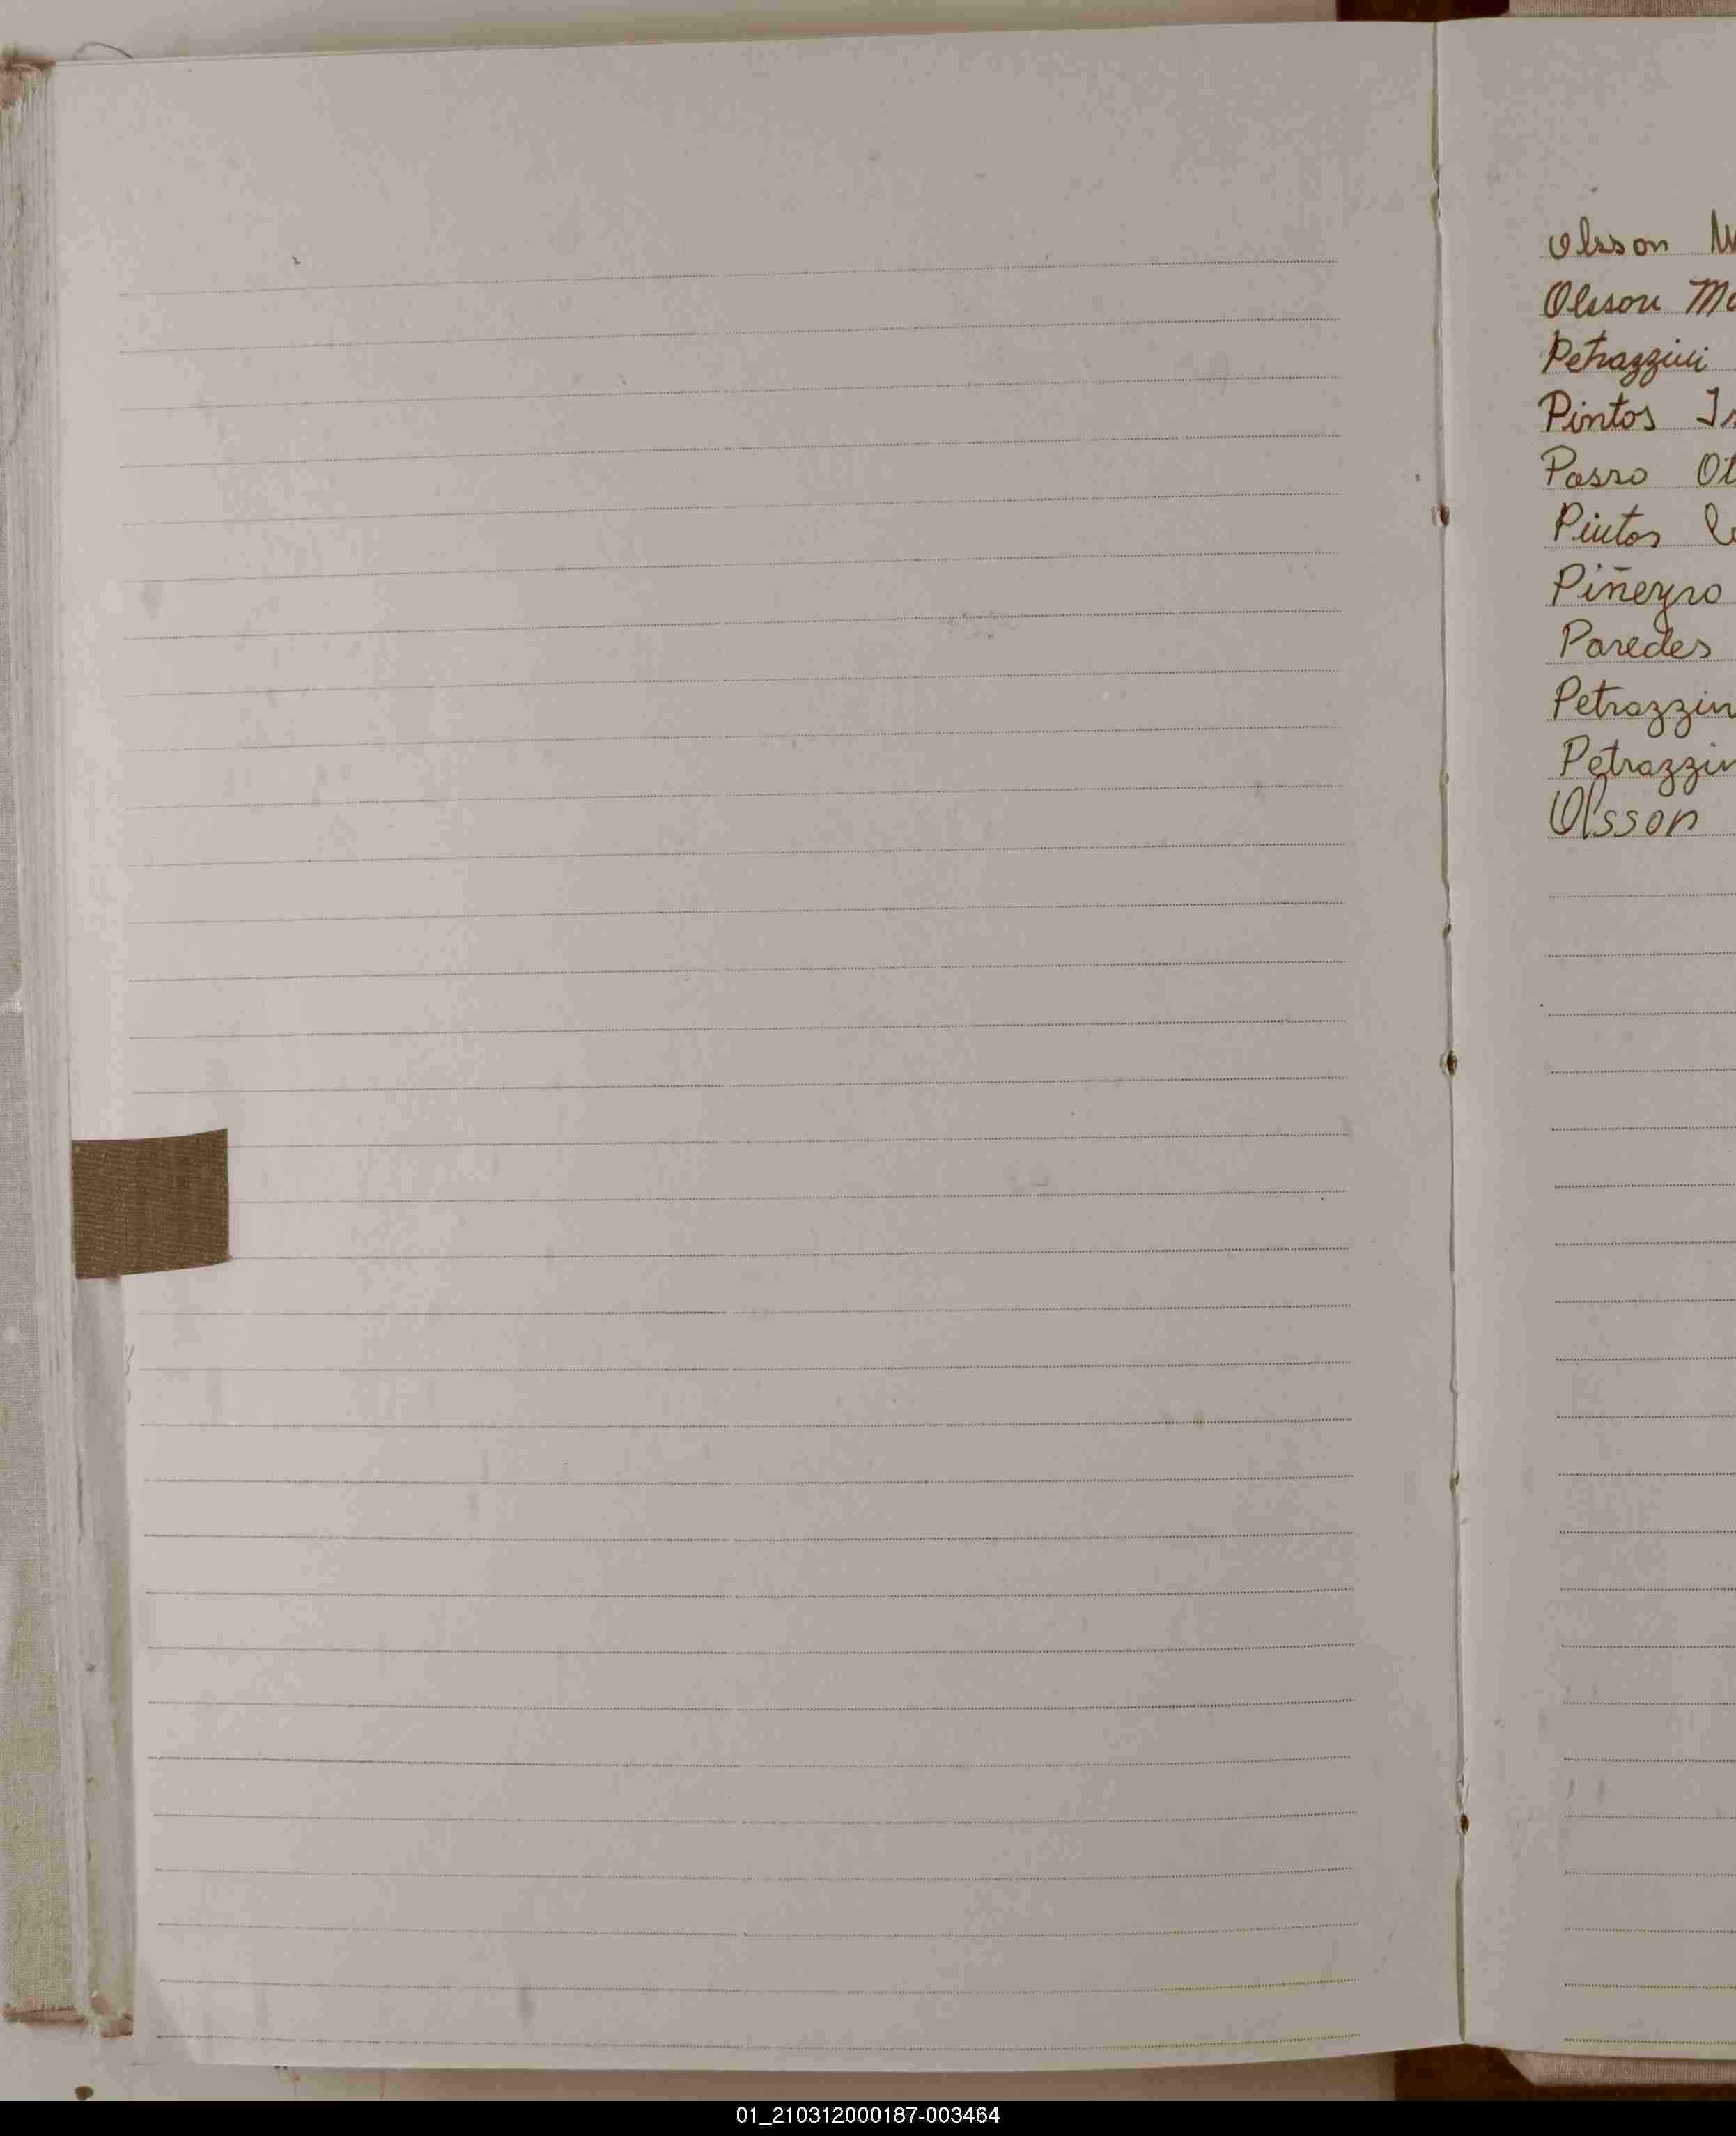 Olsson
Olsson
Petrazzini
Pintos
Passo
Pintos
Piñeyro
Paredes
Petrazzin
Petrazzin
Olsson
01_210312000187-003464